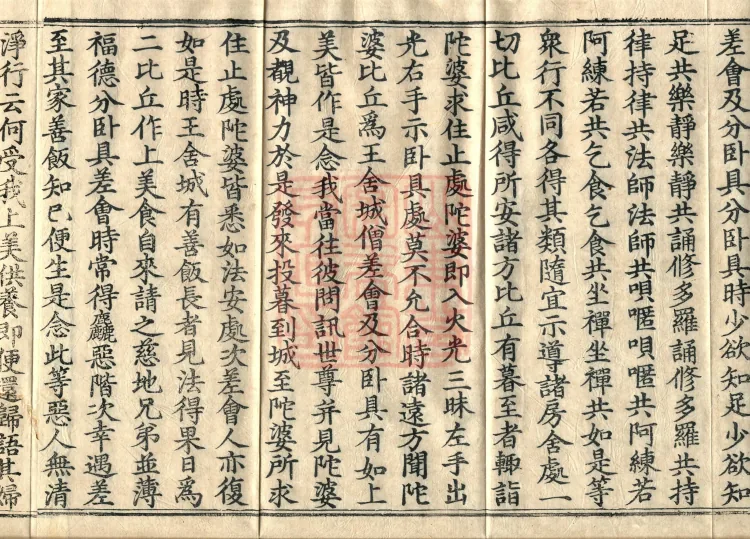 差會及分卧具分卧具時少欲知足少欲知
足共樂靜樂靜共誦修多羅誦修多羅共持
律持律共法師法師共唄𠾱唄𠾱共阿練若
阿練若共乞食乞食共坐禪坐禪共如是等
衆行不同各得其類隨宜示導諸房舍處一
切比丘咸得所安諸方比丘有暮至者輙詣
陀婆求住止處陀婆即入火光三昧左手出
光右手示卧具處莫不允合時諸遠方聞陀
婆比丘爲王舍城僧差會及分卧具有如上
美皆作是念我當往彼問訊世尊并見陀婆
及覩神力於是發來投暮到城至陀婆所求
住止處陀婆皆悉如法安處次差會人亦復
如是時王舍城有善飯長者見法得果日爲
二比丘作上美食自來請之慈地兄弟並薄
福德分卧具差會時常得麤惡階次幸遇差
至其家善飯知已便生是念此等惡人無清
淨行云何受我上美供養即便還歸語其婦